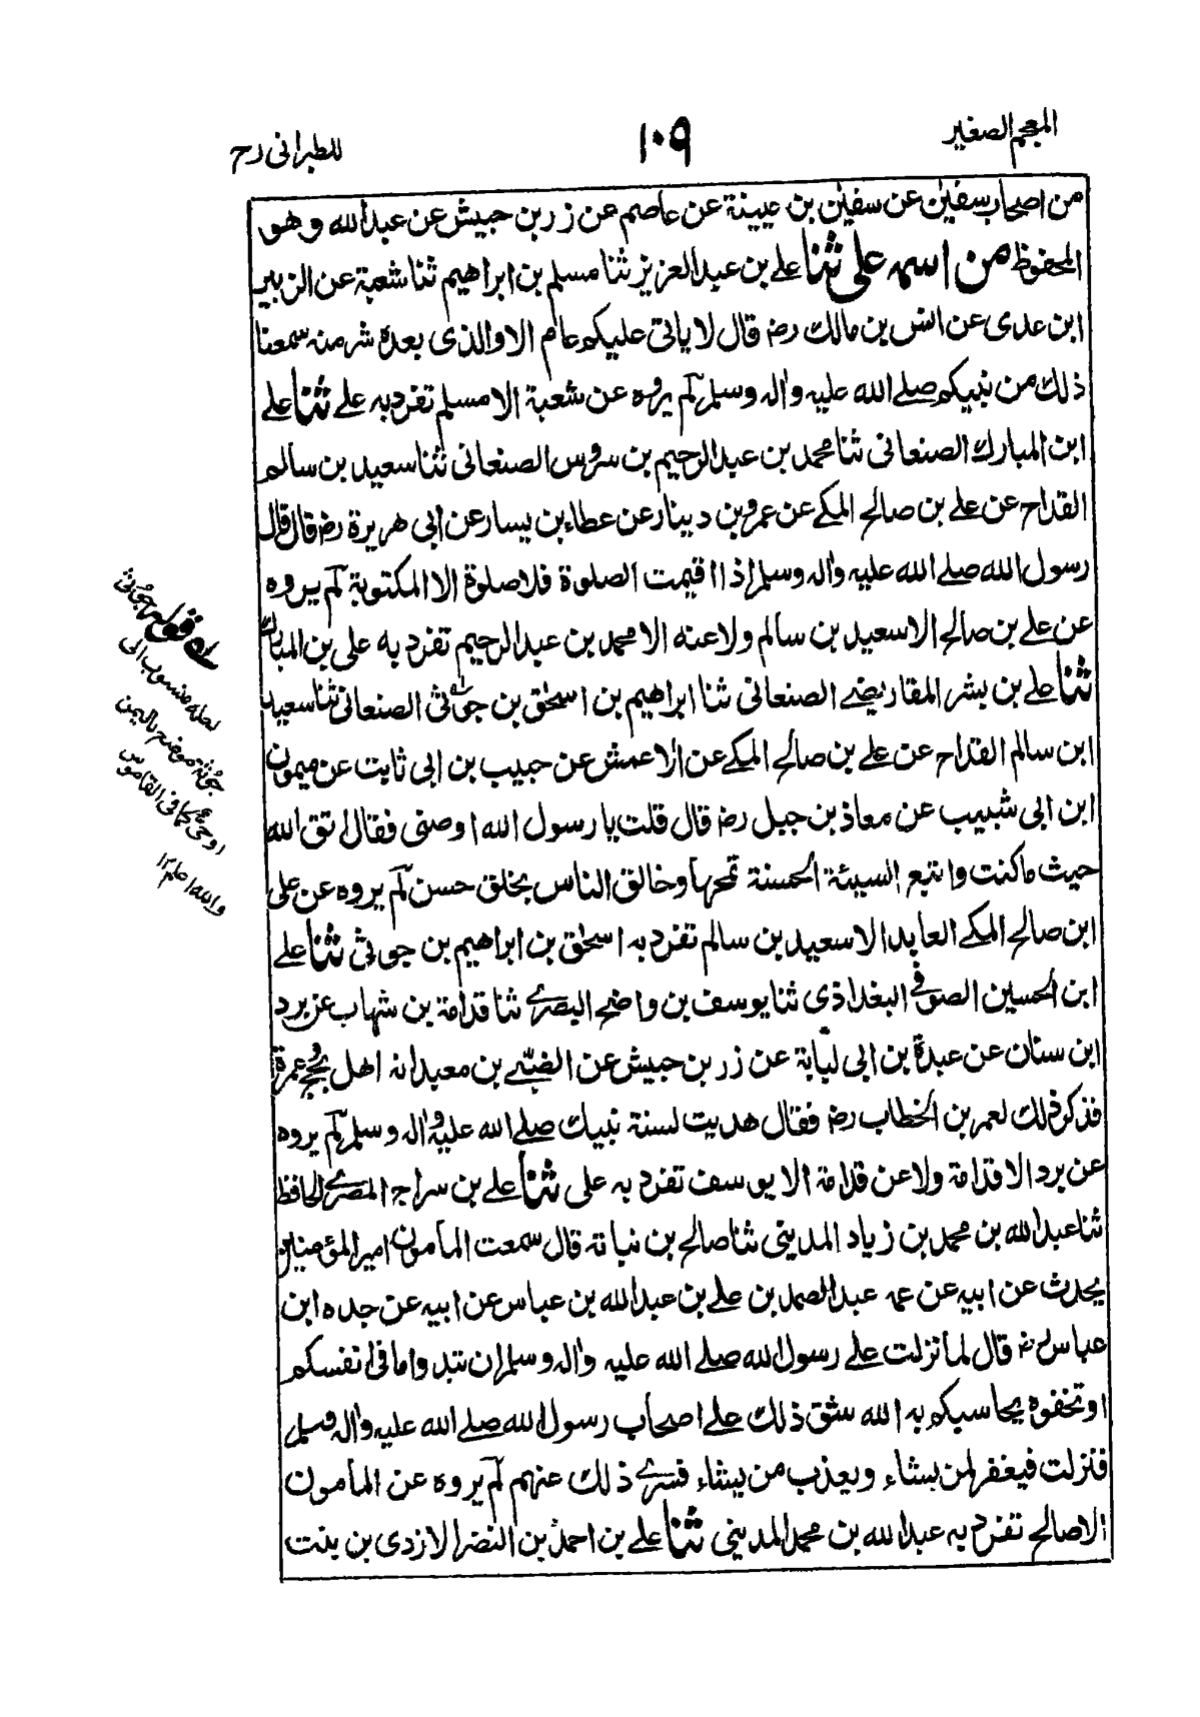 المعجم الصغير
١٠٩
للطبرانى رح
من اصحاب سفيٰن عن سفيٰن بن عيينة عن عاصم عن زر بن حبيش عن عبدالله وهو
المحفوظ من اسمه على ثنا علے بن عبدالعزيز ثنا مسلم بن ابراهيم ثنا شعبة عن الزبير
ابن عدى عن انس بن مالك رضـ قال لا ياتى عليكم عام الا والذى بعده شر منه سمعنا
ذلك من نبيكم صلے الله عليه واٰله وسلم لم يروه عن شعبة الا مسلم تفرد به علے ثنا علے
ابن المبارك الصنعانى ثنا محمد بن عبدالرحيم بن سروس الصنعانى ثنا سعيد بن سالم
القداح عن علے بن صالح المكے عن عمرو بن دينار عن عطاء بن يسار عن ابى هريرة رضـ قال قال
رسول الله صلے الله عليه واٰله وسلم اذا اقيمت الصلوة فلا صلوة الا المكتوبة لم يروه
عن علے بن صالح الا سعيد بن سالم ولا عنه الا محمد بن عبدالرحيم تفرد به على بن المبارك
ثنا علے بن بشر المقاريضے الصنعانى ثنا ابراهيم بن اسحٰق بن جوثى الصنعانى ثنا سعيد
ابن سالم القداح عن علے بن صالح المكے عن الاعمش عن حبيب بن ابى ثابت عن ميمون
ابن ابى شبيب عن معاذ بن جبل رضـ قال قلت يا رسول الله اوصنى فقال اتق الله
حيث ما كنت واتبع السيئة الحسنة تمحها وخالق الناس بخلق حسن لم يروه عن على
ابن صالح المكے العابد الا سعيد بن سالم تفرد به اسحٰق بن ابراهيم بن جوثى ثنا علے
ابن الحسين الصوفے البغداذى ثنا يوسف بن واضح البصرے ثنا قدامة بن شهاب عن برد
ابن سنان عن عبدة بن ابى لبابة عن زر بن حبيش عن الضبّے بن معبد انه اهل بحج وعمرة
فذكر ذلك لعمر بن الخطاب رضـ فقال هديت لسنة نبيك صلے الله عليه واٰله وسلم لم يروه
عن برد الا قدامة ولا عن قدامة الا يوسف تفرد به على ثنا علے بن سراج المصرے الحافظ
ثنا عبدالله بن محمد بن زياد المدينى ثنا صالح بن نباتة قال سمعت المأمون امير المؤمنين
يحدث عن ابيه عن عمه عبدالصمد بن علے بن عبدالله بن عباس عن ابيه عن جده ابن
عباس رضـ قال لما نزلت علے رسول الله صلے الله عليه واٰله وسلم ان تبدوا ما فى انفسكم
اوتخفوه يحاسبكم به الله شق ذلك علے اصحاب رسول الله صلے الله عليه واٰله وسلم
فنزلت فيغفر لمن يشاء ويعذب من يشاء فسرے ذلك عنهم لم يروه عن المأمون
الا صالح تفرد به عبدالله بن محمد المدينى ثنا علے بن احمد بن النضر الازدى بن بنت
لـه قوله جوثى
لعله منسوب الى
جوثة موضع باليمن
كما فى القاموس
والله اعلم ١٢